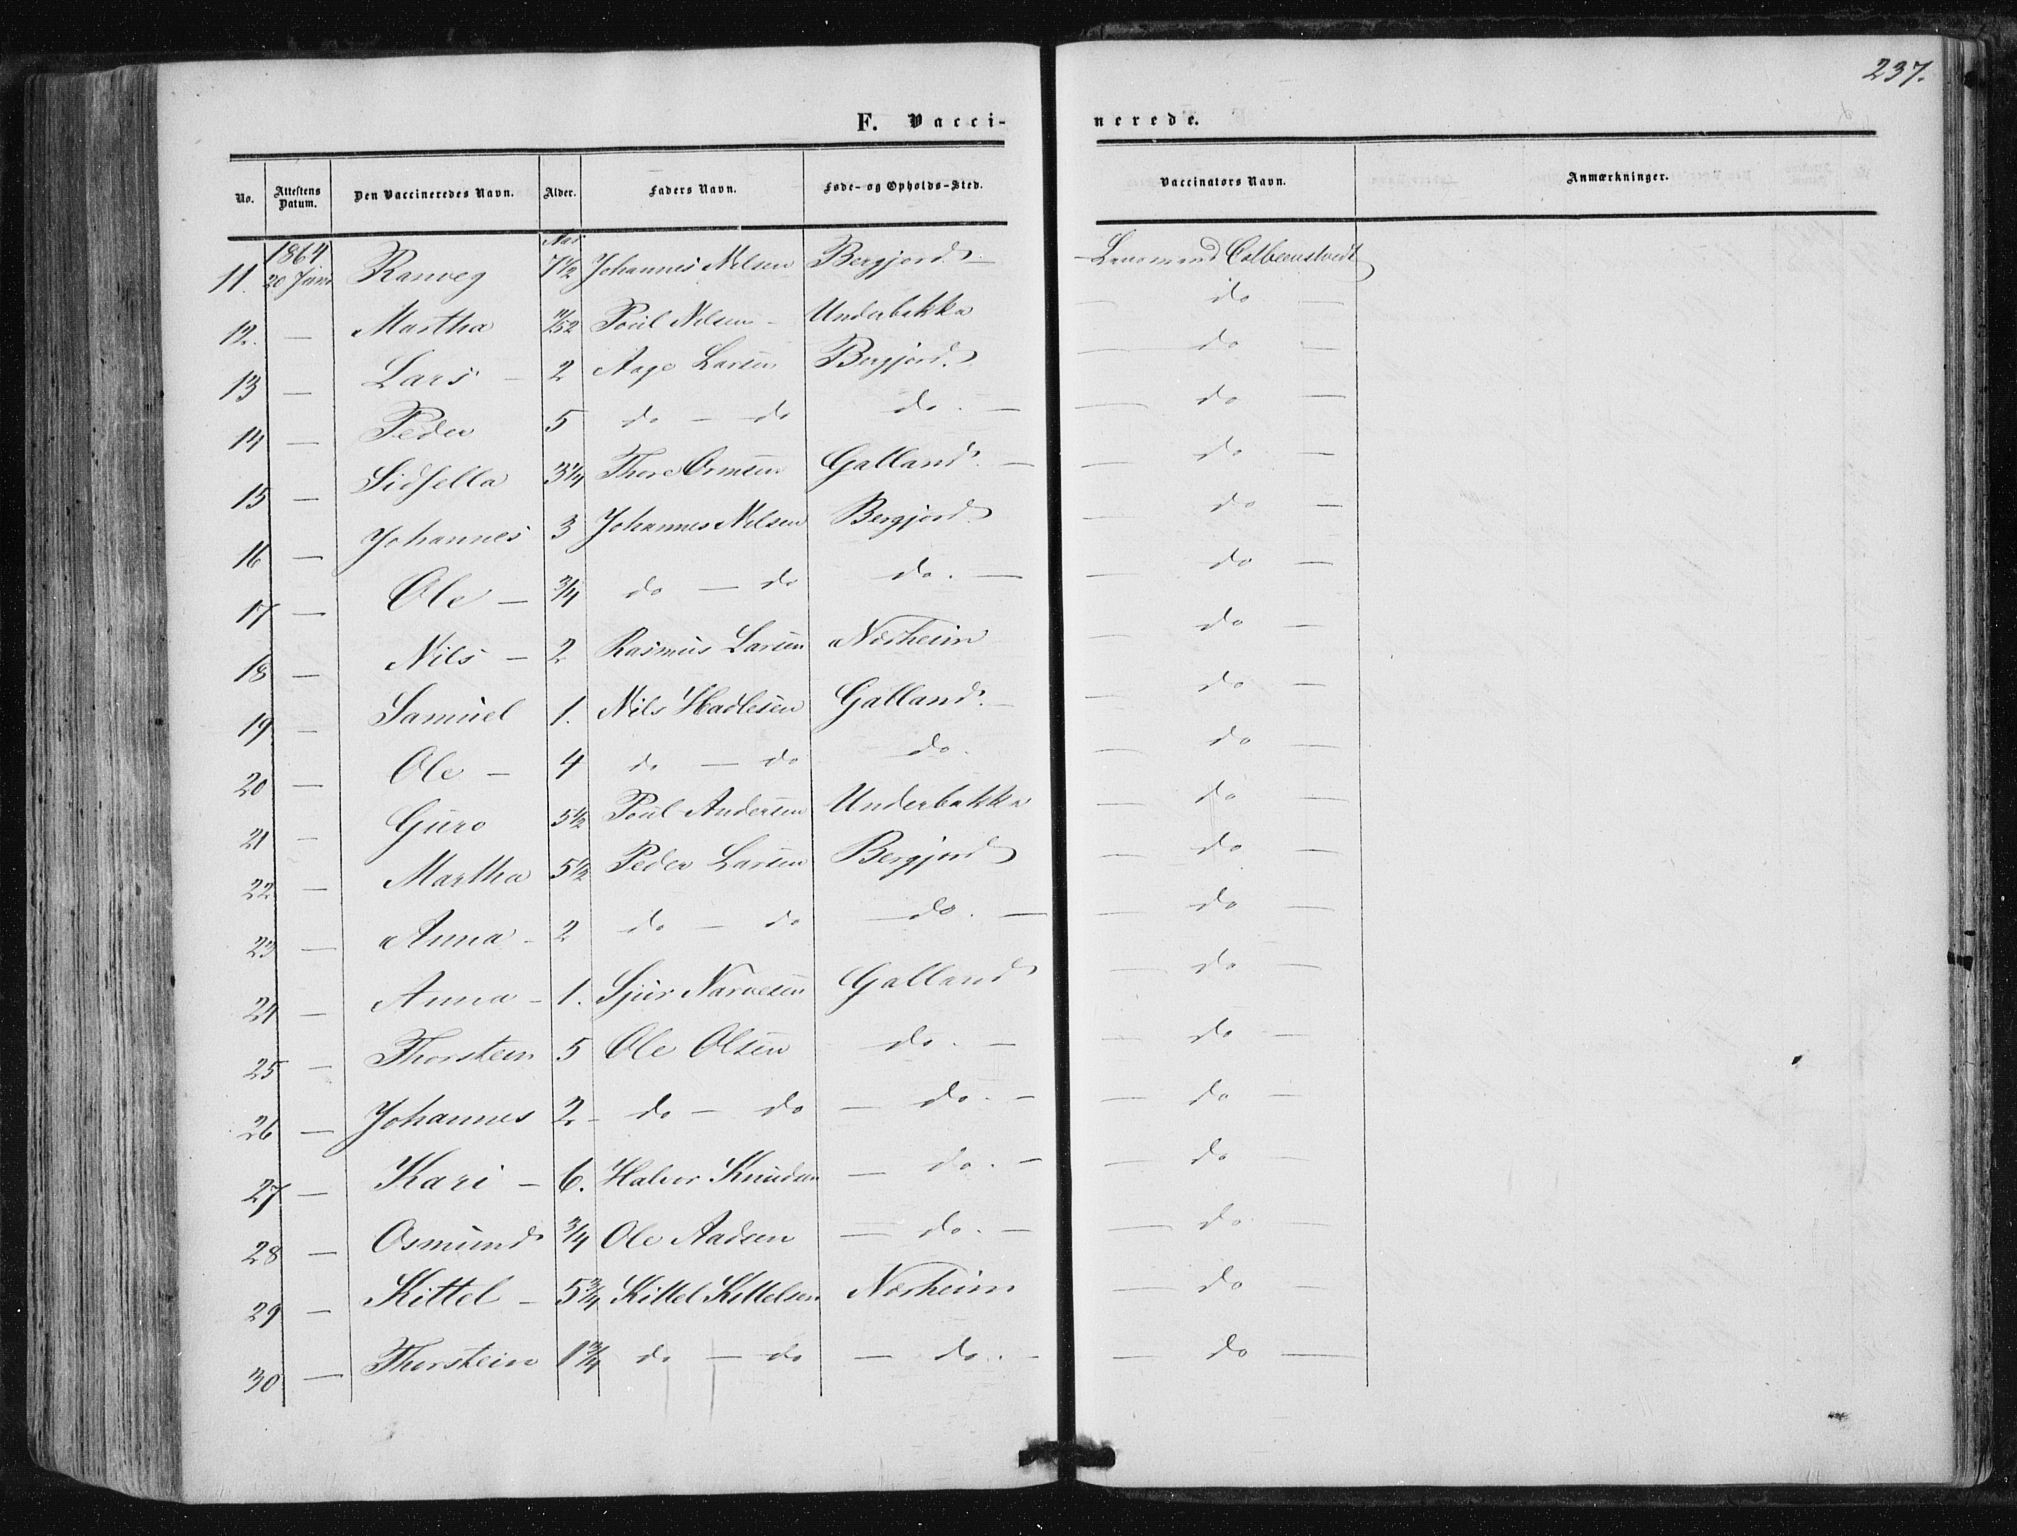 237.
F. Vaccinerede.
No. Attestens Datum. Den Vaccineredes Navn. Alder. Faders Navn. Føde- og Opholds-Sted. Vaccinators Navn. Anmærkninger.
1864 Aar
11. 20 Juni Ranveg 7½ Johannes Nilsen Bergjord Lensmand
12. — Martha /52 Poul Nilsen — Underbakka — do —
13 — Lars — 2 Aage Larsen Bergjord. — do —
14 — Peder 5 do — do do. — — do —
15 — Sidsella 3¼ Thore Ormsen Galland. — — do —
16 — Johannes 3 Johannes Nilsen Bergjord — do —
17 — Ole — ¾ do — do do. — — do —
18 — Nils — 2 Rasmus Larsen Norheim — do —
19 — Samuel 1. Nils Hadlesen Galland. — — do —
20 — Ole — 4 do — do do. — do —
21 — Guro 5½ Poul Andersen Underbakka — do —
22 — Martha 5½ Peder Larsen Bergjord — do —
23 — Anna — 2 do — do — do. — — do —
24 — Anna — 1. Sjur Narvesen Galland — do —
25 — Thorstein 5 Ole Olsen do. — — do —
26 — Johannes 2 — do — do — do. — — do —
27 — Kari — 6. Halvor Knudsen — do. — — do —
28 — Osmund ¾ Ole Aadsen — do. — — do —
29 — Kittel — 5¾ Kittel Kittelsen Norheim — do —
30 — Thorstein 1¾ do — do — do. — — do —